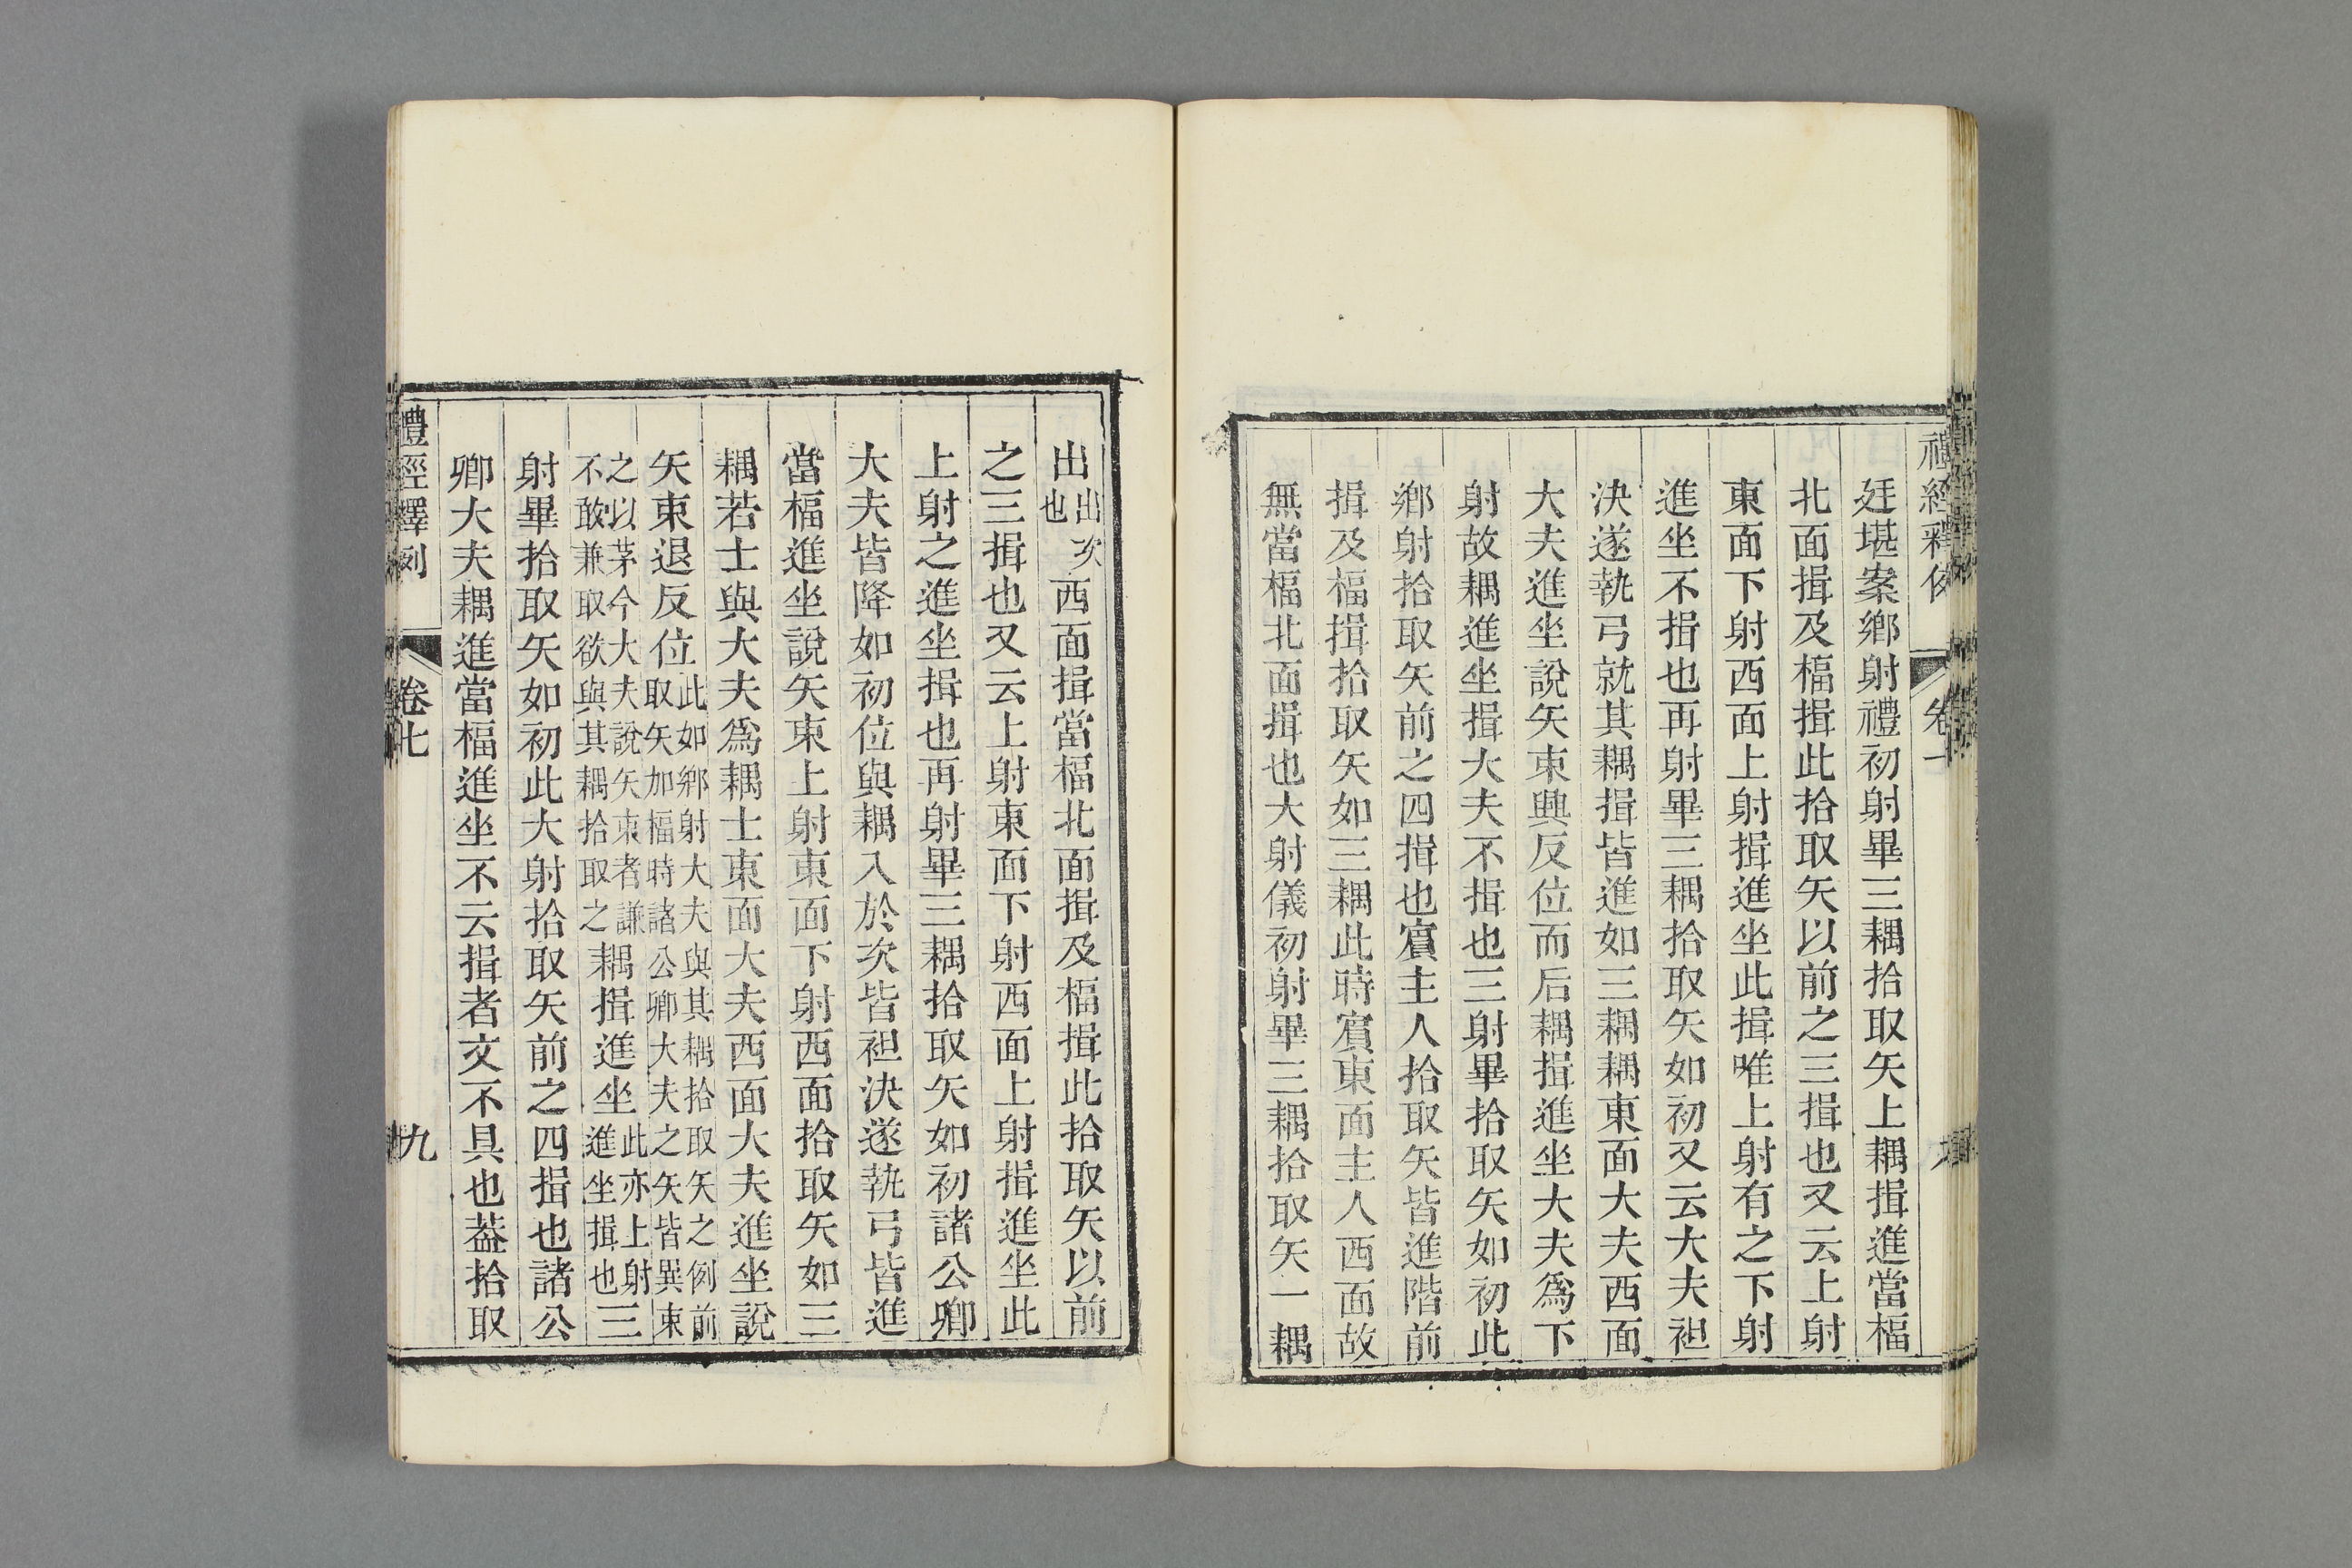 禮經釋例
卷七
廷堪案鄉射禮初射畢三耦拾取矢上耦揖進當楅
北面揖及楅揖此拾取矢以前之三揖也又云上射
東面下射西面上射揖進坐此揖唯上射有之下射
進坐不揖也再射畢三耦拾取矢如初又云大夫袒
決遂執弓就其耦揖皆進如三耦耦東面大夫西面
大夫進坐說矢束興反位而后耦揖進坐大夫爲下
射故耦進坐揖大夫不揖也三射畢拾取矢如初此
鄉射拾取矢前之四揖也賓主人拾取矢皆進階前
揖及楅揖拾取矢如三耦此時賓東面主人西面故
無當楅北面揖也大射儀初射畢三耦拾取矢一耦
出出次也西面揖當楅北面揖及楅揖此拾取矢以前
之三揖也又云上射東面下射西面上射揖進坐此
上射之進坐揖也再射畢三耦拾取矢如初諸公卿
大夫皆降如初位與耦入於次皆袒決遂執弓皆進
當楅進坐說矢束上射東面下射西面拾取矢如三
耦若士與大夫爲耦士東面大夫西面大夫進坐說
矢束退反位此如鄉射大夫與其耦拾取矢之例前取矢加楅時諸公卿大夫之矢皆異束
之以茅今大夫說矢束者謙不敢兼取欲與其耦拾取之耦揖進坐此亦上射進坐揖也三
射畢拾取矢如初此大射拾取矢前之四揖也諸公
卿大夫耦進當楅進坐不云揖者文不具也葢拾取
禮經釋例
卷七
九